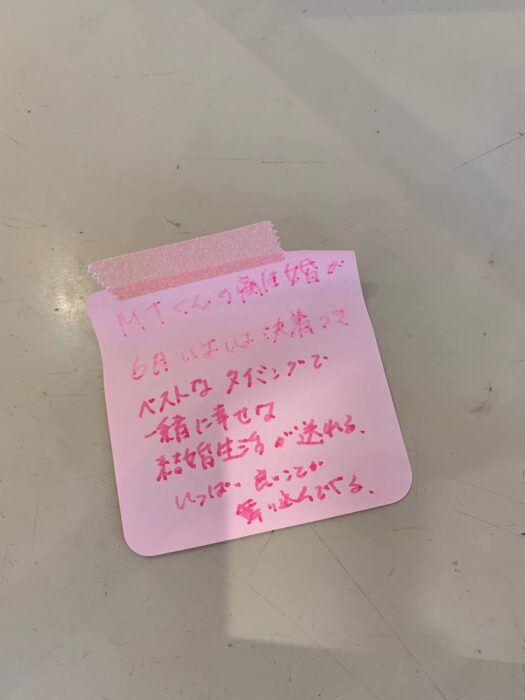 MTくんの離婚が
6月いよいよ決着つて
ベストなタイミングで
一緒に幸せな
結婚生活が送れる、
いっぱい良いことが
舞い込んでくる、